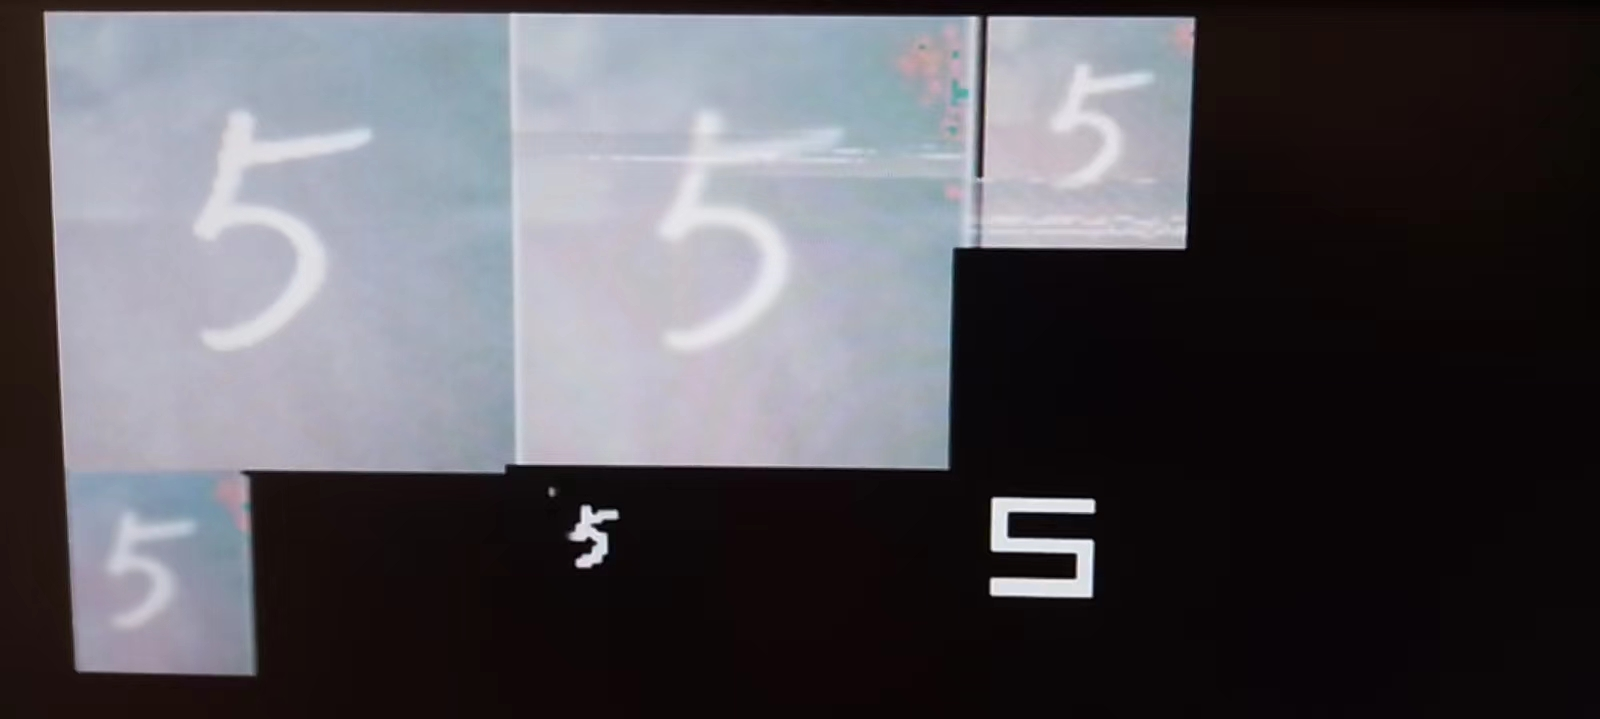 5 5 5
5 5 5